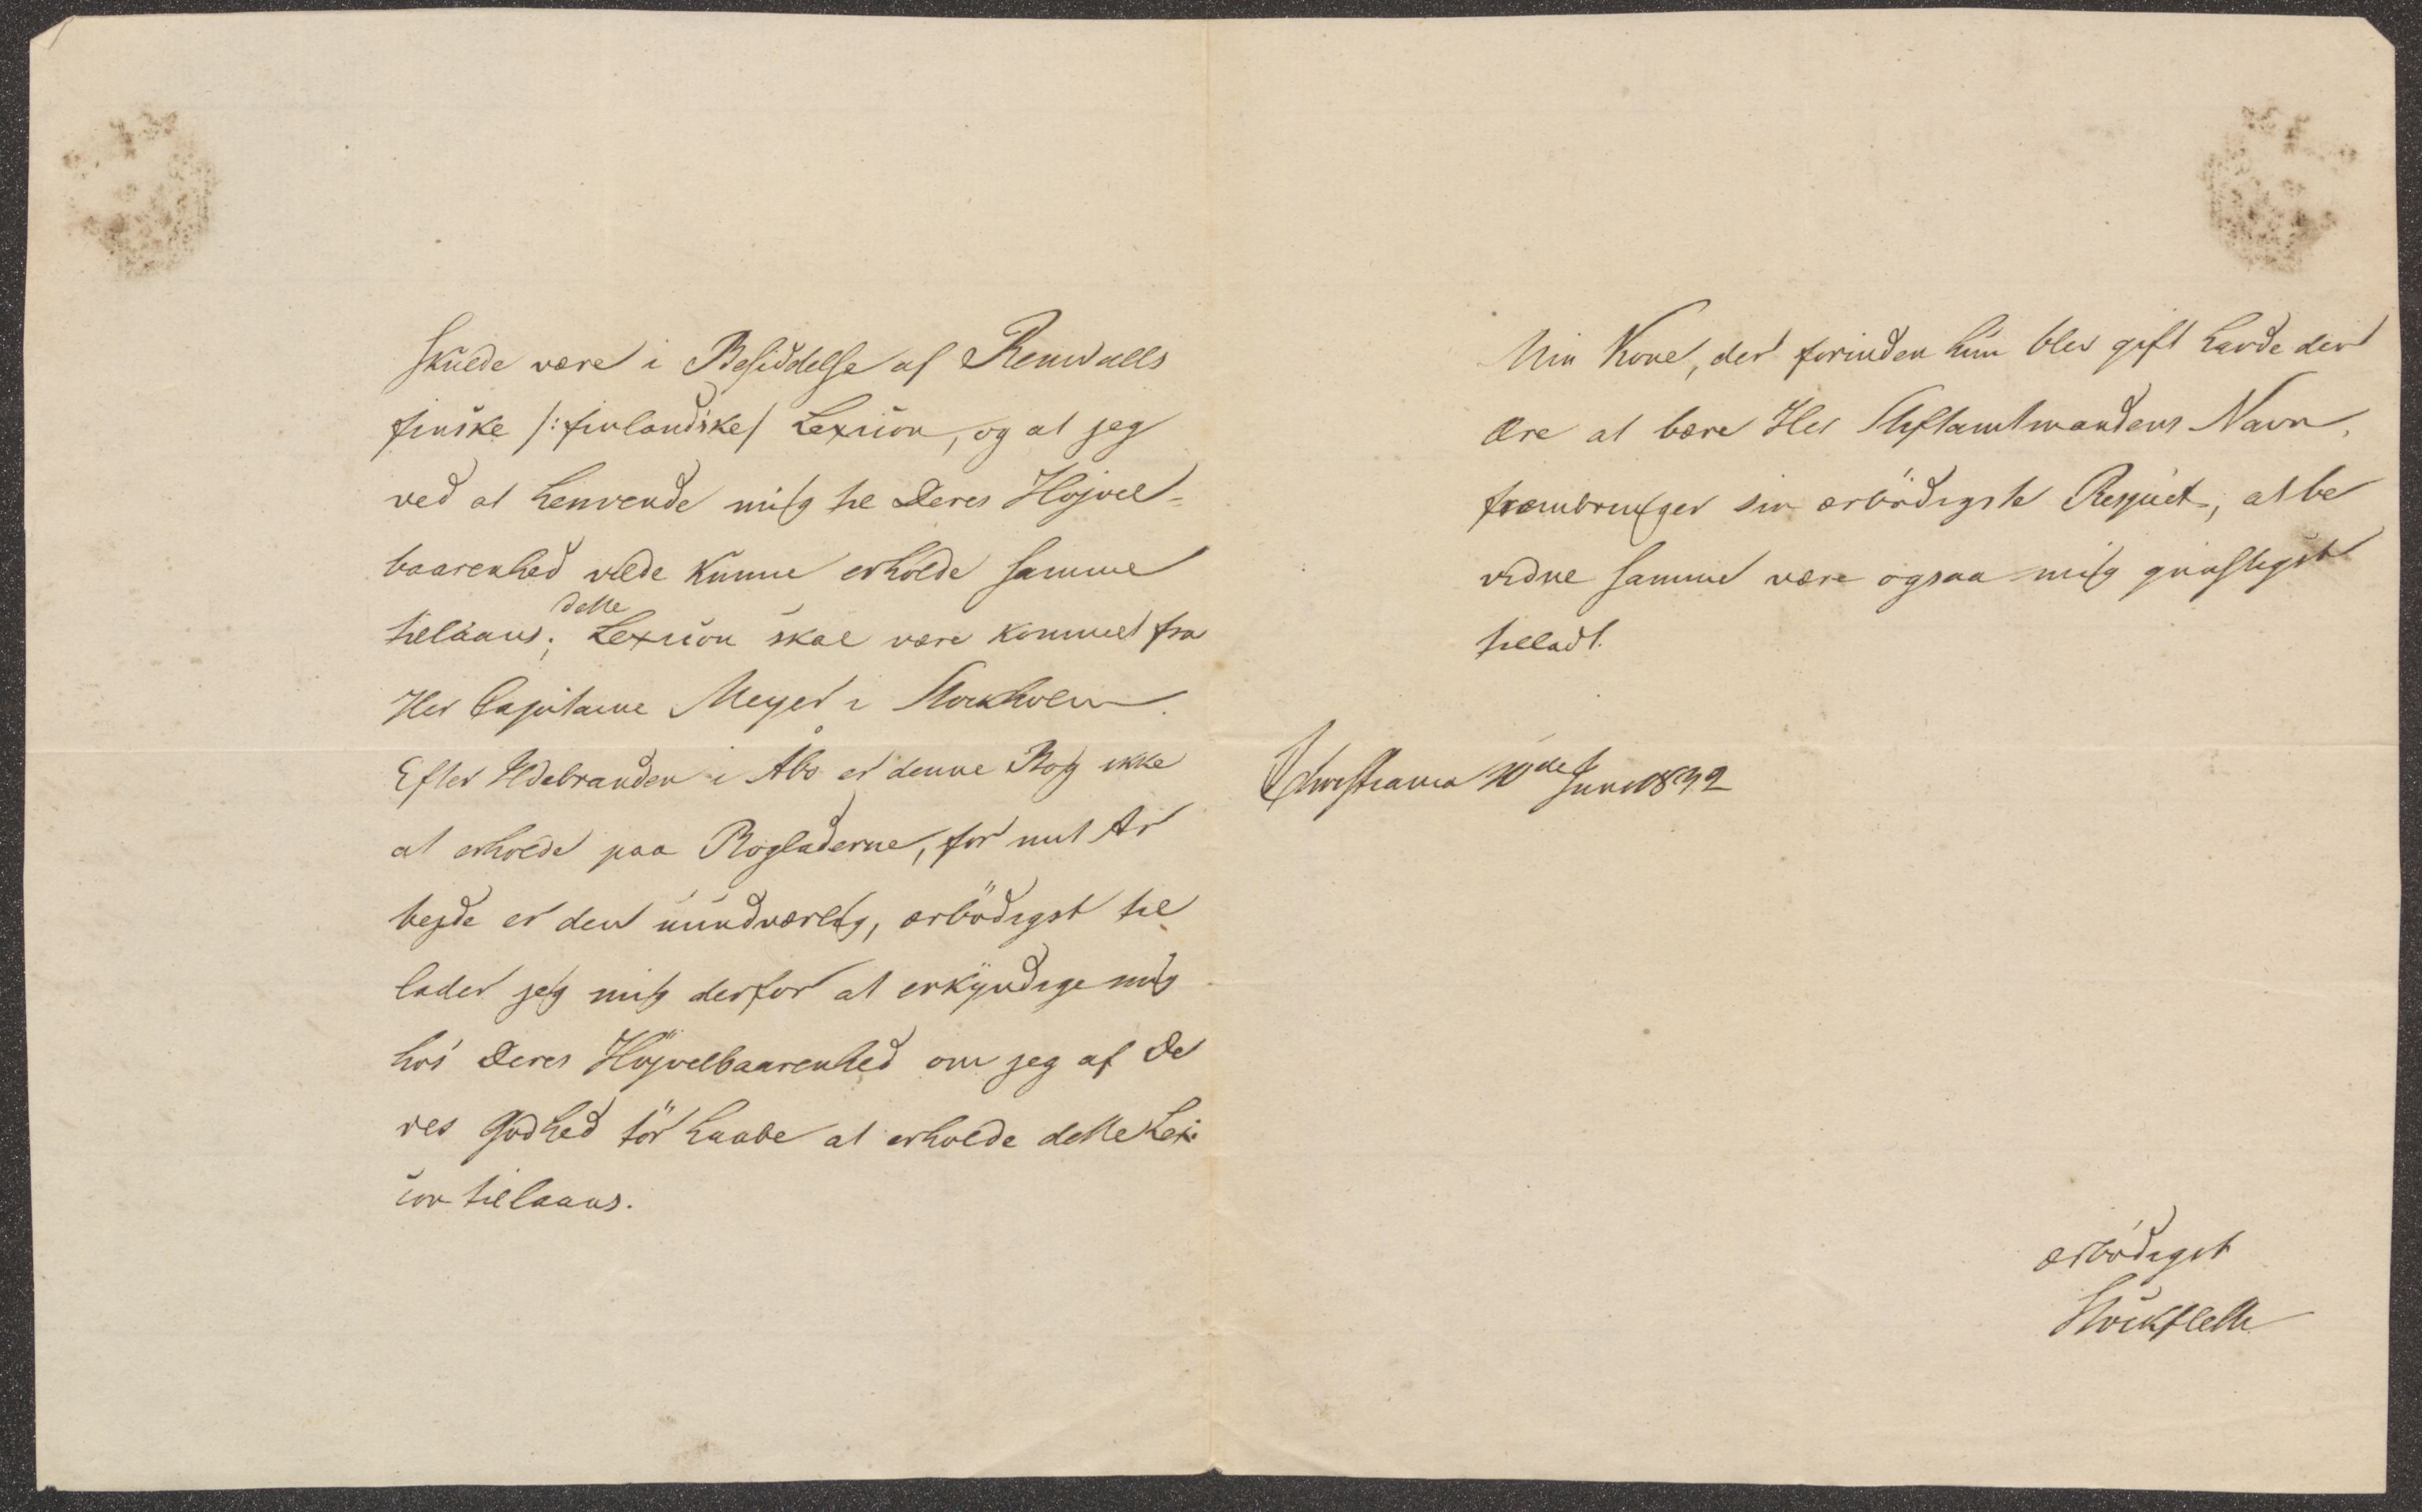 skulde være i Besiddelse af Renvalls
finske /:finlandske/ Lexicon, og at jeg
ved at henvende mig til Deres Højvel-
baarenhed vilde kunne erholde samme
tillaans; dette Lexicon skal være kommet fra
Her Capitaine Meyer i Stockholm.
Efter Ildebranden i Åbo er denne Bog ikke
at erholde paa Bogladerne, for mit Ar
bejde er den uundværlig, ærbödigst til
lader jeg mig derfor at erkyndige mig
hos Deres Höjvelbaarenhed om jeg af De
res Godhed tör haabe at erholde dette Lexi
con tillaans.
Min Kone, der forinden hun blev gift havde den
Ære at bære Her Stiftamtmandens Navn,
frembringer sin ærbödigste Respect, at be
vidne samme være ogsaa mig gunstigst
tilladt.
Christiania 10de Juni 1832
ærbödigst
Stockfleth